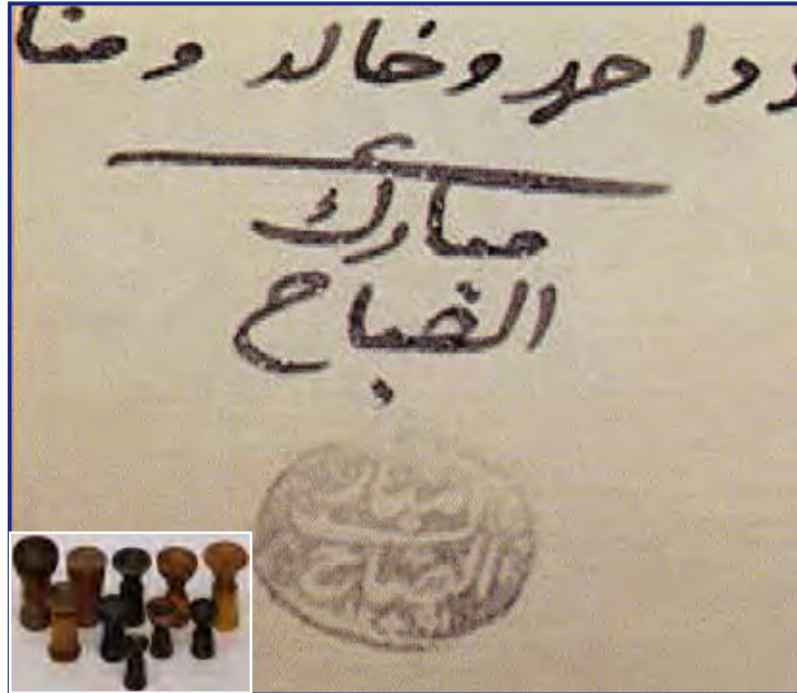 احمد وخالد ومنا
مبارك
الصباح
مبارك
الصباح